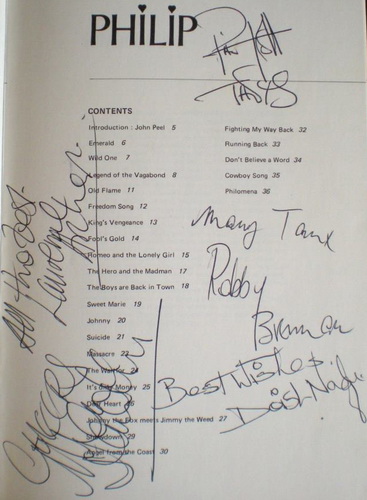 PHILIP
CONTENTS
Introduction : John Peel 5
Emerald 6
Wild One 7
Legend of the Vagabond 8
Old Flame 11
Freedom Song 12
King's Vengeance 13
Fool's Gold 14
Romeo and the Lonely Girl 15
The Hero and the Madman 17
The Boys are Back in Town 18
Sweet Marie 19
Johnny 20
Suicide 21
Massacre 23
The Warrior 24
It's Only Money 25
Dear Heart 26
Johnny the Fox meets Jimmy the Weed 27
Showdown 29
Angel from the Coast 30
Fighting My Way Back 32
Running Back 33
Don't Believe a Word 34
Cowboy Song 35
Philomena 36
Many Tanx
Robby
Brennan
Best Wishes
All the Best